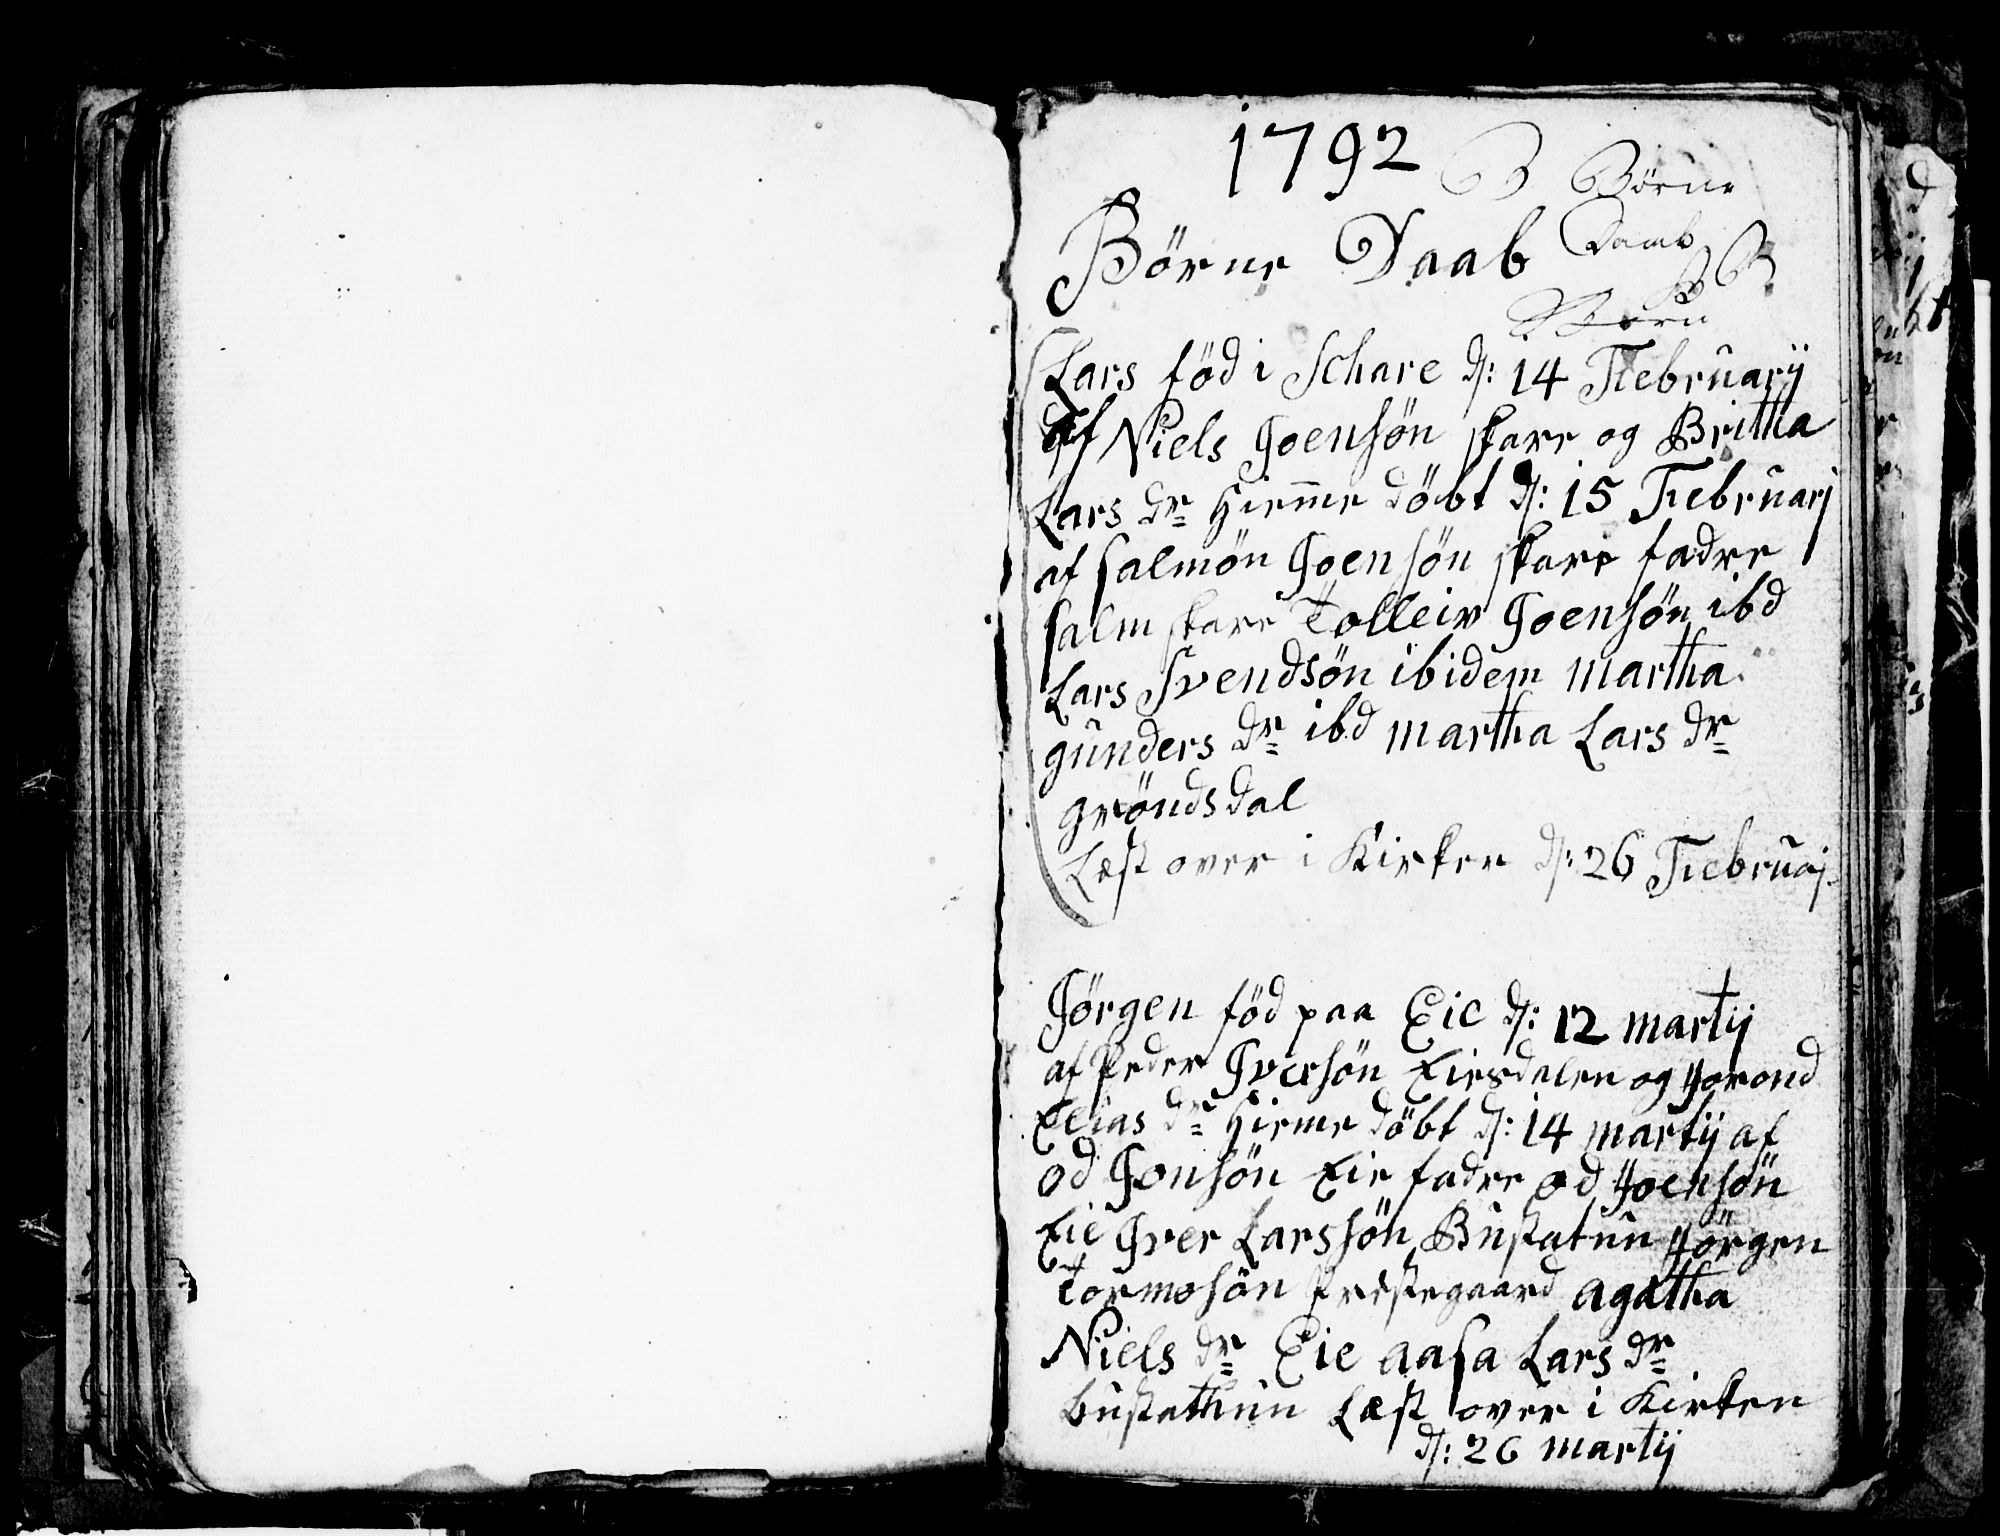 1792
B Börne
Börne Daab Daab
B B
Börn
Lars föd i Schare d: 14 Februarij
af Niels Joensön skare og Britha
Lars dr Hieme döbt d: 15 Februarj
af salmön Joensön skare fadre
salm skare Tolleiv Joensön ibd
Lars Svendsön ibidem martha
gunders dr ibd martha Lars dr
gröndsdal
Læst over i Kirken d: 26 Februaj
Jörgen föd paa Eie d: 12 martij
af Peder Iversön Eiesdalen og Jorond
Elias dr Hieme döbt d: 14 martij af
od Jonsön Eie fadre od Joensön
Eie Iver Larssön Bustatun Jörgen
Tormosön Prestegaard agatha
Niels dr Eie aasa Lars dr
bustathun Læst over i Kirken
d: 26 martij